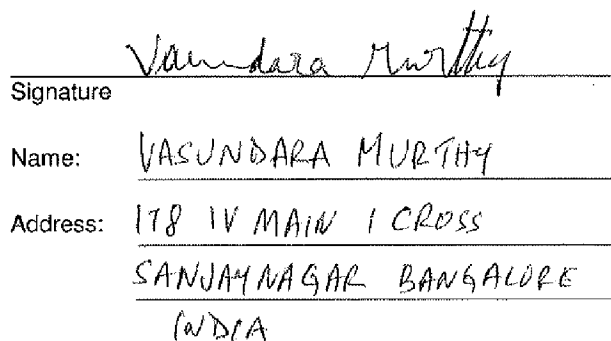 Vasundara Murthy
Signature
Name: VASUNDARA MURTHY
Address: 178 IV MAIN 1 CROSS
SANJAYNAGAR BANGALORE
INDIA